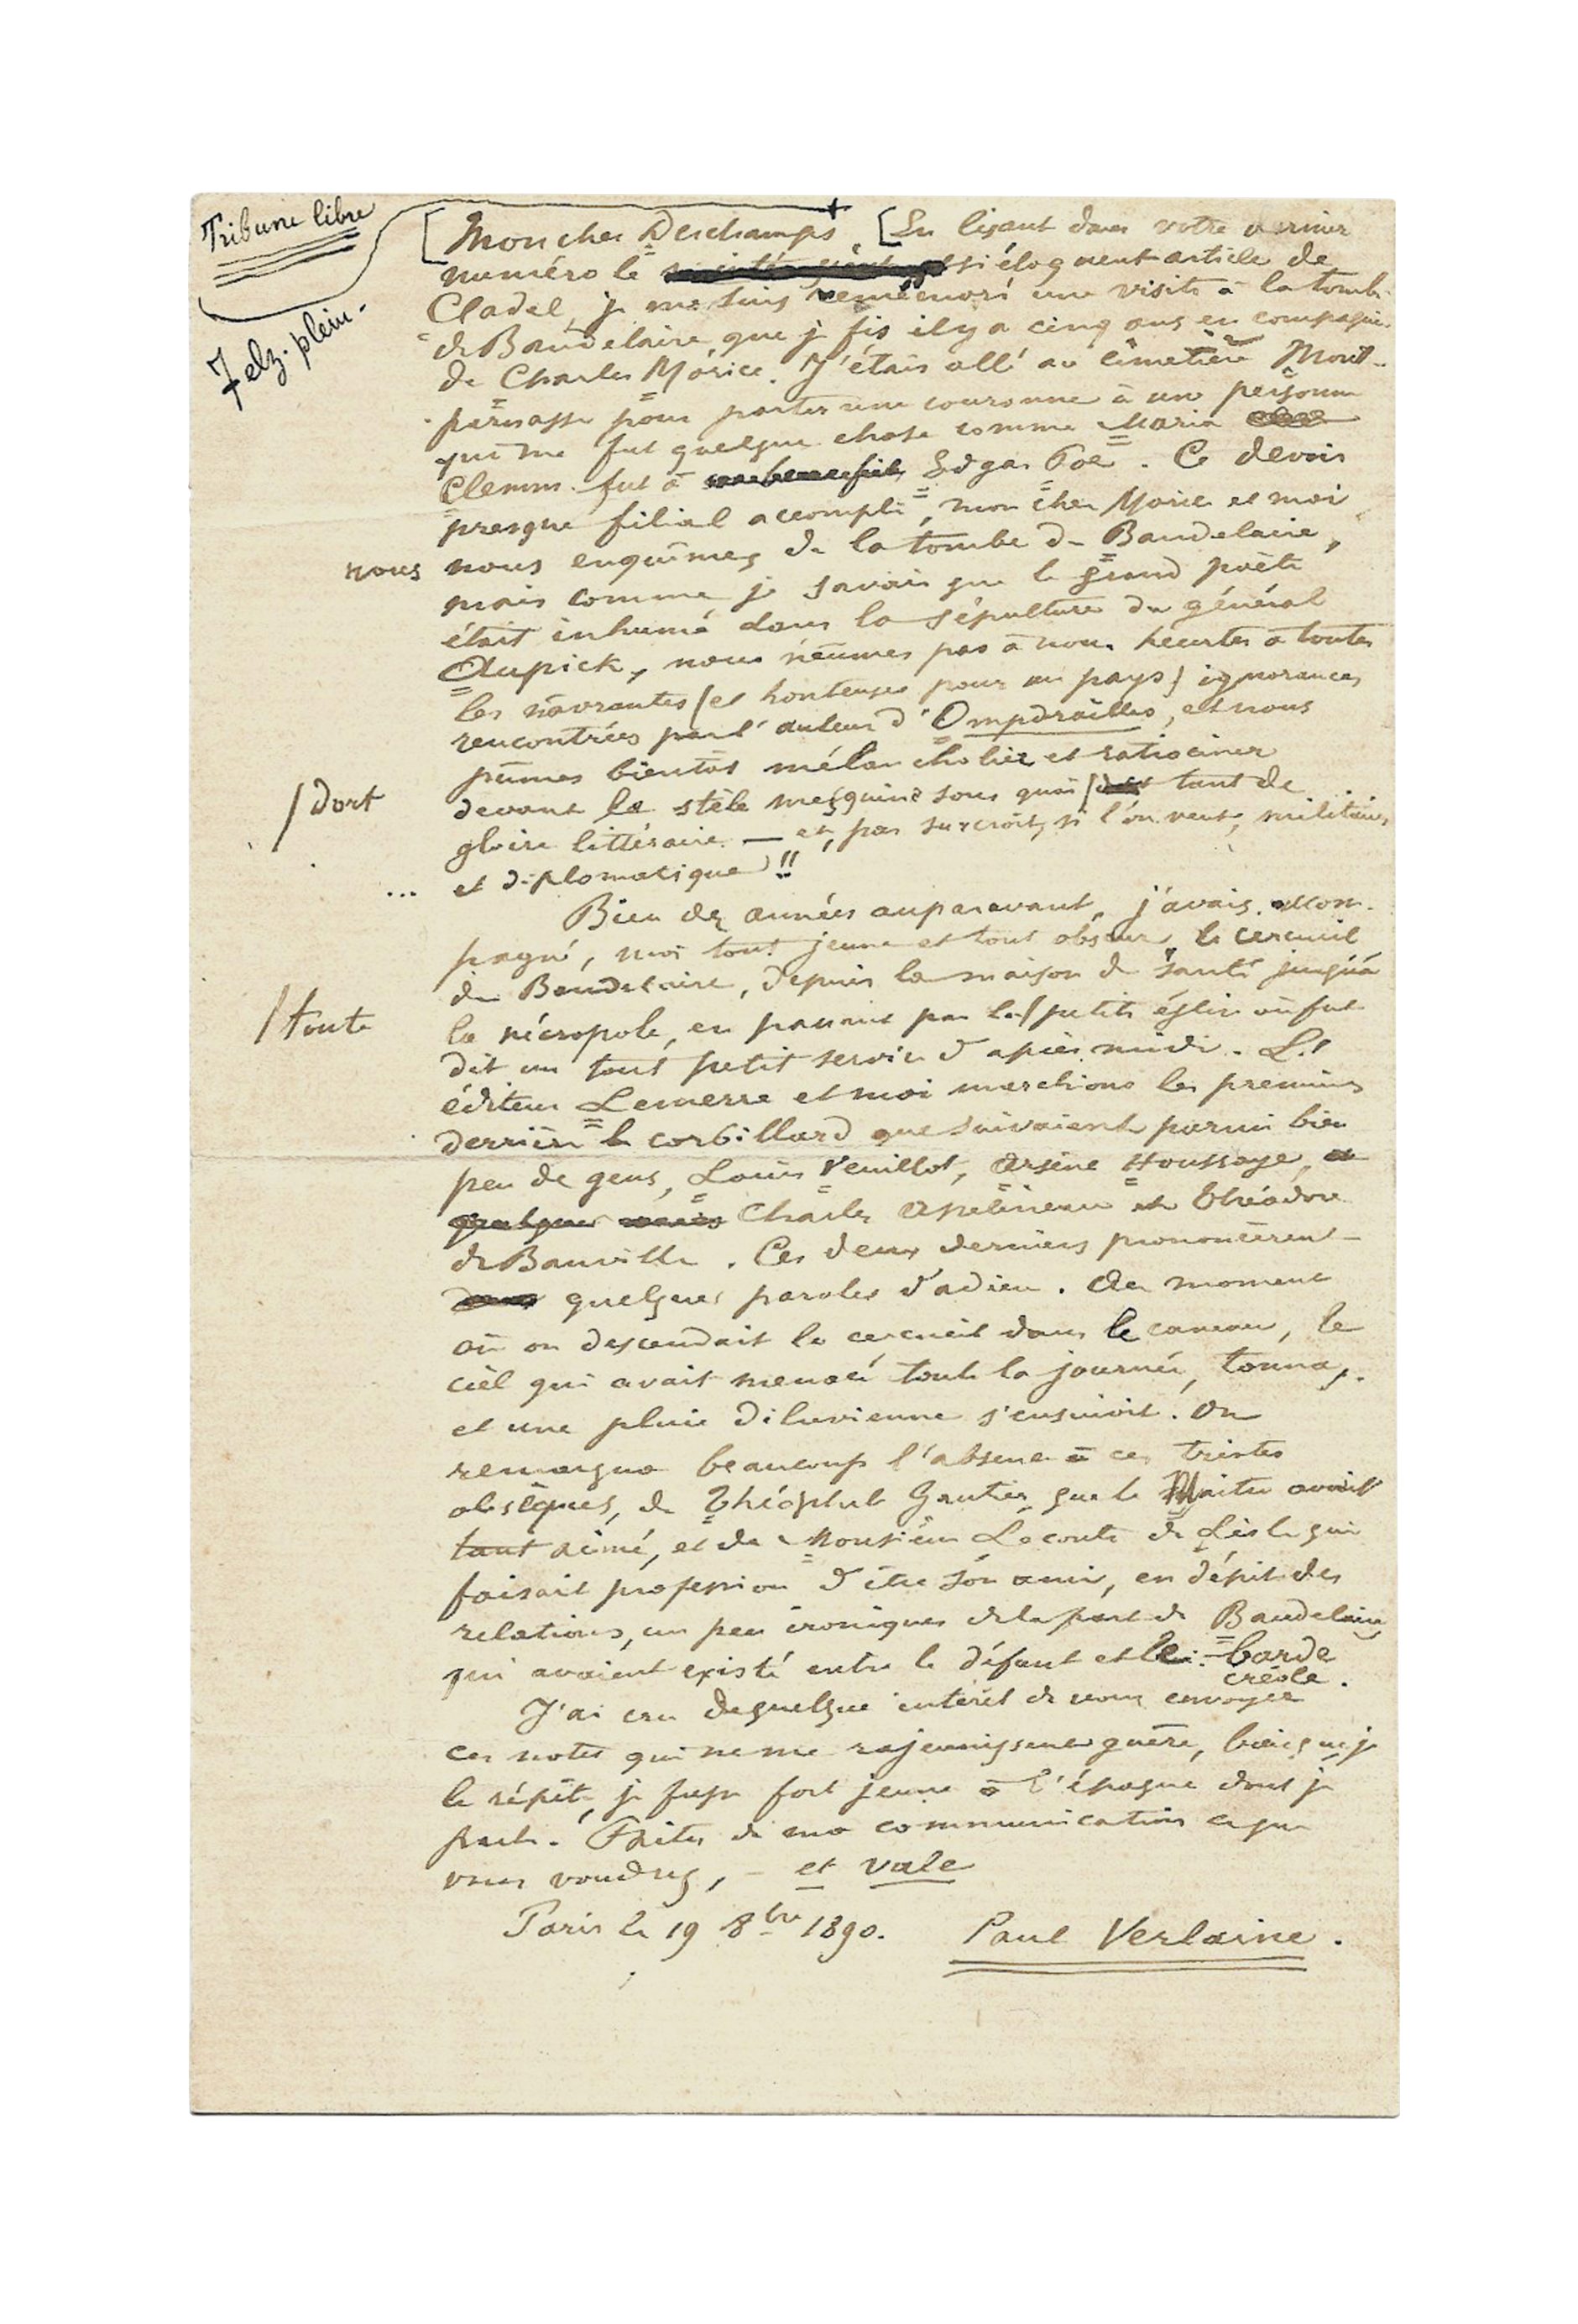 Tribune libre
7 elz. plein -
Mon cher Deschamps, En lisant dans votre dernier
numéro le si éloquent article de
Cladel, je me suis remémoré une visite à la tombe
de Baudelaire que je fis il y a cinq ans en compagnie
de Charles Morice. J'étais allé au cimetière Mont-
parnasse pour porter une couronne à une personne
qui me fut quelque chose comme Maria
Clemm fut à Edgar Poe. Ce devoir
presque filial accompli, mon cher Morice et moi
nous nous enquîmes de la tombe de Baudelaire,
mais comme je savais que le grand poète
était inhumé dans la sépulture du général
Aupick, nous n'eûmes pas à nous heurter à toutes
les navrantes (et honteuses pour un pays) ignorances
rencontrées par l'auteur d'Ompdrailles, et nous
pûmes bientôt mélancholier et ratiociner
devant la stèle mesquine sous quoi / tant de
/ dort
gloire littéraire — et, par surcroît, si l'on veut, militaire
... et diplomatique !!
Bien des années auparavant, j'avais accom-
pagné, moi tout jeune et tout obscur, le cercueil
de Baudelaire, depuis la maison de santé jusqu'à
la nécropole, en passant par la / petite église où fut
/ toute
dit un tout petit service d'après midi. L'
éditeur Lemerre et moi marchions les premiers
derrière le corbillard que suivaient parmi bien
peu de gens, Louis Veuillot, Arsène Houssaye,
Charles Asselineau et Théodore
de Banville. Ces deux derniers prononcèrent
quelques paroles d'adieu. Au moment
où on descendait le cercueil dans le caveau, le
ciel qui avait menacé toute la journée, tonna,
et une pluie diluvienne s'ensuivit. On
remarqua beaucoup l'absence à ces tristes
obsèques, de Théophile Gautier que le Maître avait
tant aimé, et de Monsieur Leconte de Lisle qui
faisait profession d'être son ami, en dépit des
relations, un peu ironiques de la part de Baudelaire
qui avaient existé entre le défunt et le barde
créole.
J'ai cru de quelque intérêt de vous envoyer
ces notes qui ne me rajeunissent guère, bien que je
le répète, je fusse fort jeune à l'époque dont je
parle. Faites de ma communication ce que
vous voudrez, - et vale
Paris le 19 8bre 1890. Paul Verlaine.